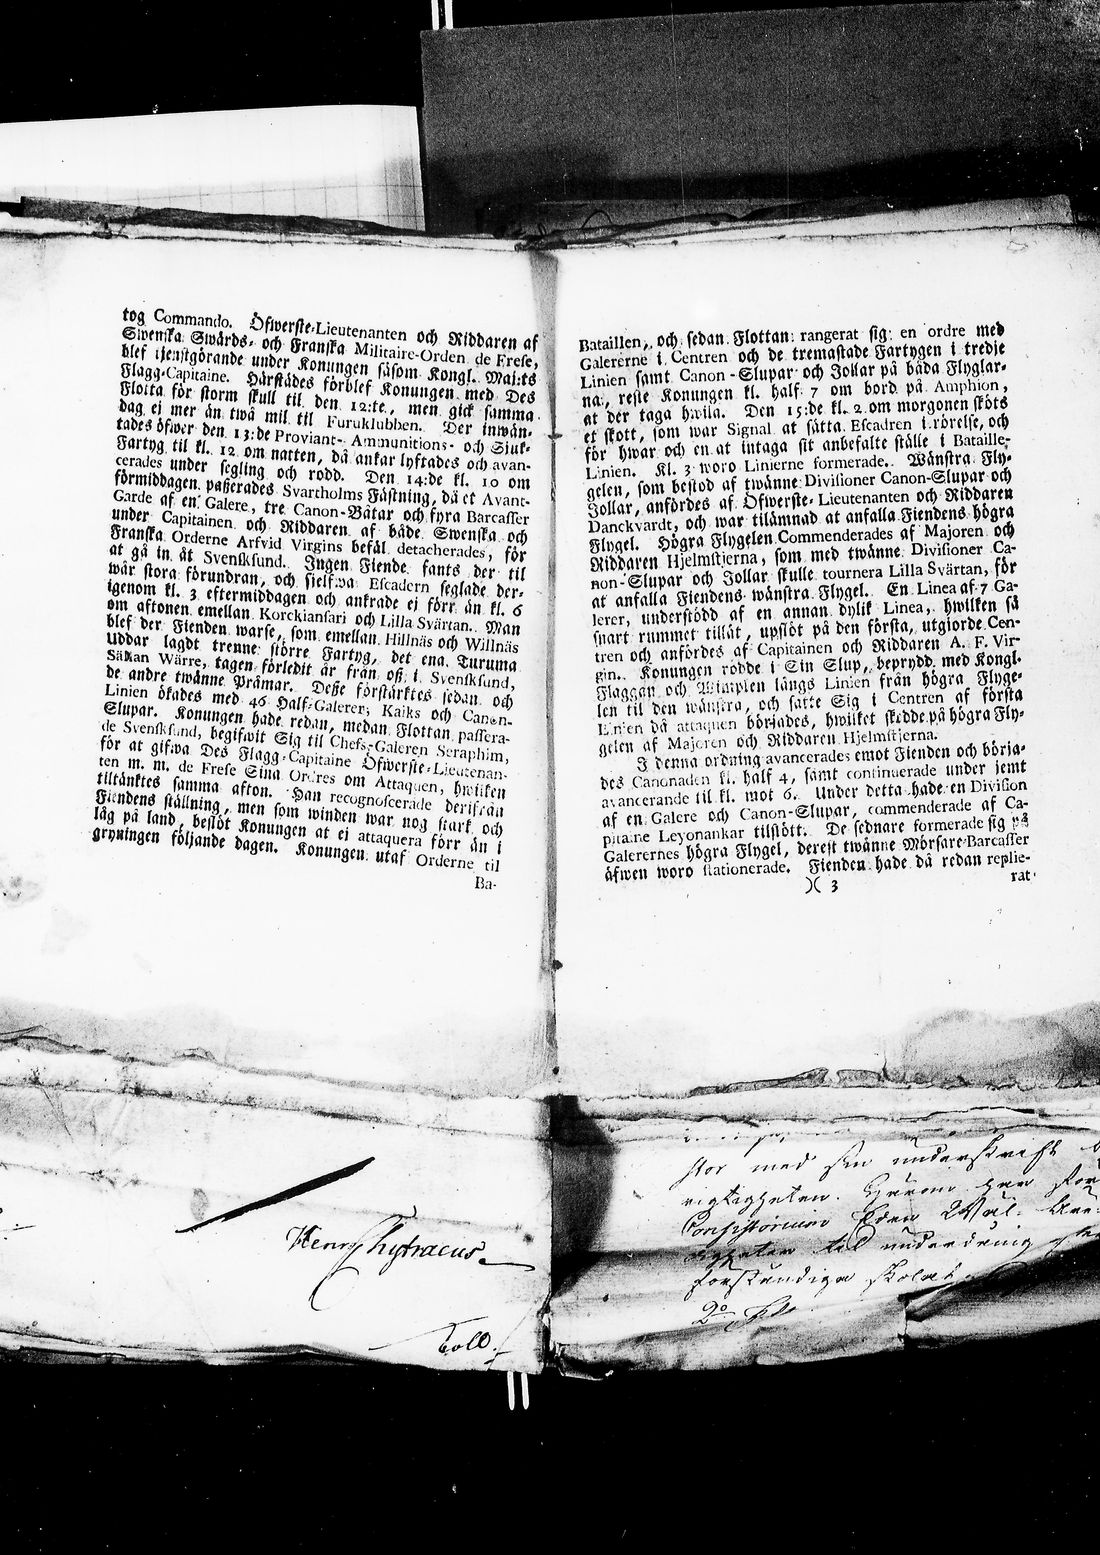 tog Commando. Öfwerste-Lieutenanten och Riddaren af
Swenska Swärds- och Franska Militaire-Orden de Frese,
blef tjenstgörande under Konungen såsom Kongl. Maj:ts
Flagg-Capitaine. Härstädes förblef Konungen med Des
Flotta för storm skull til den 12:te, men gick samma
dag ej mer än twå mil til Furuklubben. Der inwän-
tades öfwer den 13:de Proviant- Ammunitions- och Sjuk-
Fartyg til kl. 12 om natten, då ankar lyftades och avan-
cerades under segling och rodd. Den 14:de kl. 10 om
förmiddagen paßerades Svartholms Fästning, då et Avant-
Garde af en Galere, tre Canon-Båtar och fyra Barcasser
under Capitainen och Riddaren af både Swenska och
Franska Orderne Arfvid Virgins befäl detacherades, för
at gå in åt Svensksund. Ingen Fiende fants der til
wår stora förundran, och sjelfwa Escadern seglade der-
igenom kl. 3 eftermiddagen och ankrade ej förr än kl. 6
om aftonen emellan Korckiansari och Lilla Svärtan. Man
blef der Fienden warse, som emellan Hillnäs och Willnäs
Uddar lagdt trenne större Fartyg, det ena Turuma
Sällan Wärre, tagen förledit år från oß i Svensksund,
de andre twänne Pråmar. Deße förstärktes sedan och
Linien ökades med 46 Half-Galerer, Kaiks och Canon-
Slupar. Konungen hade redan, medan Flottan passera-
de Svensksund, begifwit Sig til Chefs-Galeren Seraphim,
för at gifwa Des Flagg-Capitaine Öfwerste-Lieutenan-
ten m. m. de Frese Sina Ordres om Attaquen, hwilken
tiltänktes samma afton. Han recognoscerade derifrån
Fiendens ställning, men som winden war nog stark och
låg på land, beslöt Konungen at ei attaquera förr än i
gryningen följande dagen. Konungen utaf Orderne til
Ba-
Bataillen, och sedan Flottan rangerat sig en ordre med
Galererne i Centren och de tremastade Fartygen i tredje
Linien samt Canon-Slupar och Jollar på båda Flyglar-
na, reste Konungen kl. half 7 om bord på Amphion,
at der taga hwila. Den 15:de kl. 2 om morgonen sköts
et skott, som war Signal at sätta Escadren i rörelse, och
för hwar och en at intaga sit anbefalte ställe i Bataille-
Linien. Kl. 3 woro Linierne formerade. Wänstra Fly-
gelen, som bestod af twänne Divisioner Canon-Slupar och
Jollar, anfördes af Öfwerste-Lieutenanten och Riddaren
Danckvardt, och war tilämnad at anfalla Fiendens högra
Flygel. Högra Flygelen Commenderades af Majoren och
Riddaren Hjelmstjerna, som med twänne Divisioner Ca-
non-Slupar och Jollar skulle tournera Lilla Svärtan, för
at anfalla Fiendens wänstra Flygel. En Linea af 7 Ga-
lerer, understödd af en annan dylik Linea, hwilken så
snart rummet tillåt, upslöt på den första, utgjorde Cen-
tren och anfördes af Capitainen och Riddaren A. F. Vir-
gin. Konungen rodde i Sin Slup, beprydd med Kongl.
Flaggan och Wimplen längs Linien från högra Flyge-
len til den wänstra, och satte Sig i Centren af första
Linien då attaquen börjades, hwilket skedde på högra Fly-
gelen af Majoren och Riddaren Hjelmstjerna.
I denna ordning avancerades emot Fienden och börja-
des Canonaden kl. half 4, samt continuerade under jemt
avancerande til kl. mot 6. Under detta hade en Division
af en Galere och Canon-Slupar, commenderade af Ca-
pitaine Leyonankar tilstött. De sednare formerade sig på
Galerernes högra Flygel, derest twänne Mörsare-Barcasser
äfwen woro stationerade. Fienden hade då redan replie-
)( 3
rat
Henr Chytraeus
Toll
stor med sin underskrift
rigtigheten.
Consistorium
til underdånig
2o